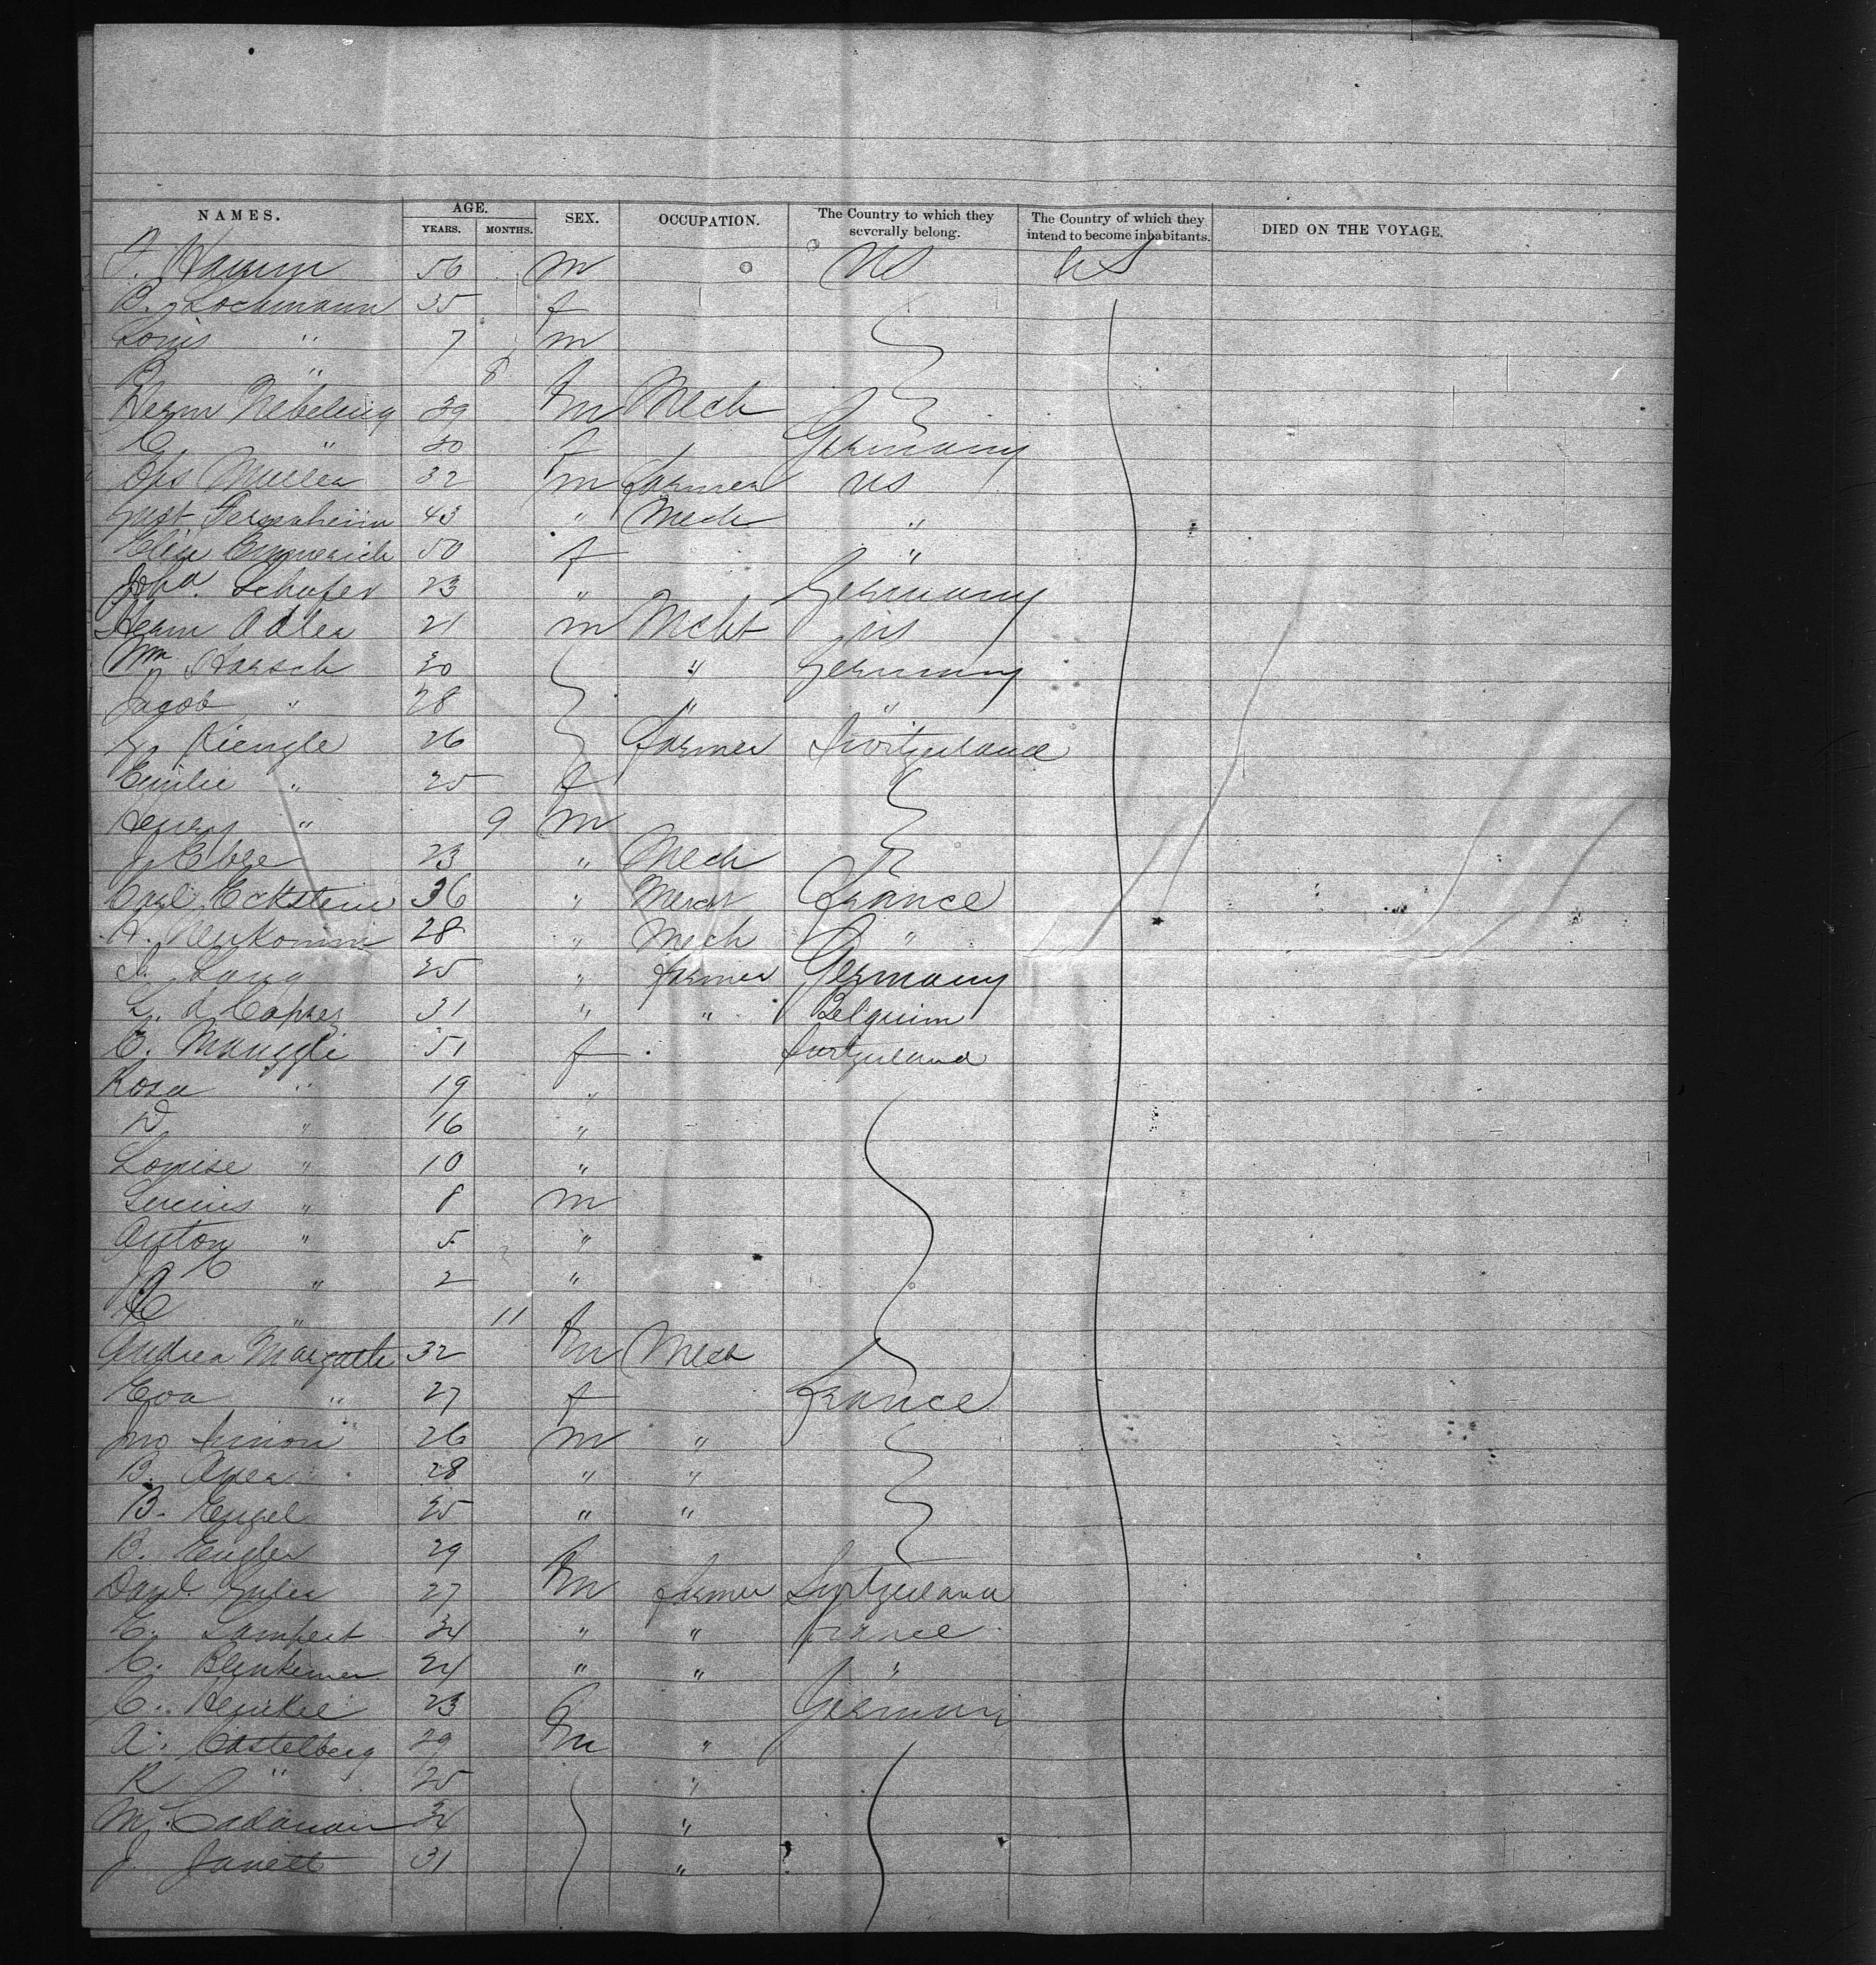 NAMES. AGE. SEX. OCCUPATION. The Country to which they severally belong. The Country of which they intend to become inhabitants. DIED ON THE VOYAGE.
YEARS. MONTHS.
F. Hamm 56 m US US
B. Lochmann 35 f
Louis " 7 m
B " 8
Herm Nebelung 39 m Mech
C " 30 f Germany
Chs Muller 32 m farmer US
Gust 43 " Mech "
Elise Emmerich 50 f "
Johа. Schafer 23 " Germany
Herm Adler 21 m Mcht US
Wm Harsch 30 " Germany
Jacob " 28 " "
G. Kiengle 26 farmer Switzerland
Emilie " 25 f
Henry " 9 m
J. Eble 23 " Mech
Carl Eckstein 36 " Merch France
A. Neukomm 28 " Mech "
J. Lang 35 " farmer Germany
L. d Caprez 31 " " Belguim
C. Manggli 51 f Switzerland
Rosa " 19 "
D " 16 "
Louise " 10 "
" 8 m
Anton " 5 "
" 2 "
" 11
Andrea 32 m Mech
Eva " 27 f France
Jno Simon 26 m "
B. 28 " "
B. Engel 35 " "
B. Engler 29
Danl. 27 m farmer Switzerland
E. Lampert 34 " " France
C. 24 " " "
C. Henkel 23 German
A. Castelberg 29 m "
R " 25 "
M. Cadonau 34 "
J. Janett 31 "